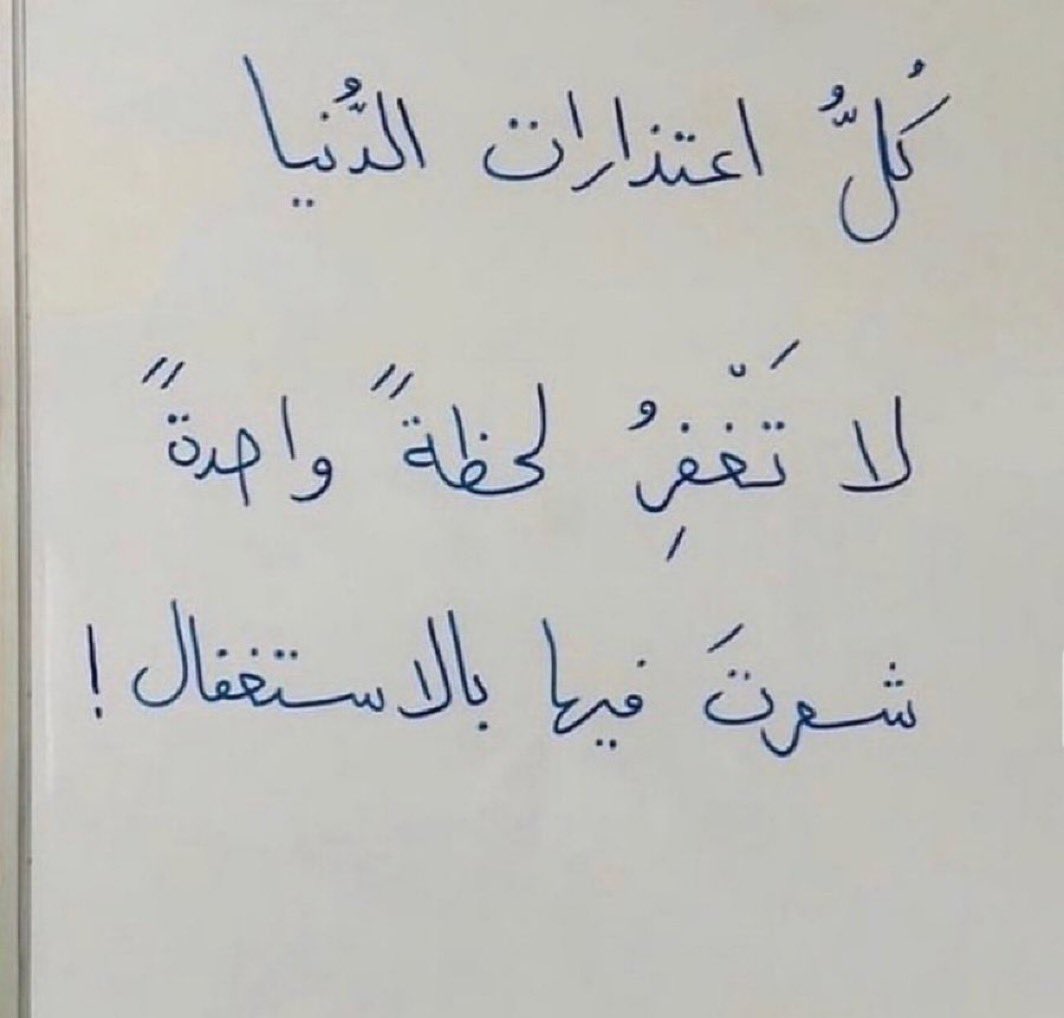 كُلُّ اعتذارات الدُّنيا
لا تَغْفِرُ لحظةً واحدةً
شعرتَ فيها بالاستغفال !